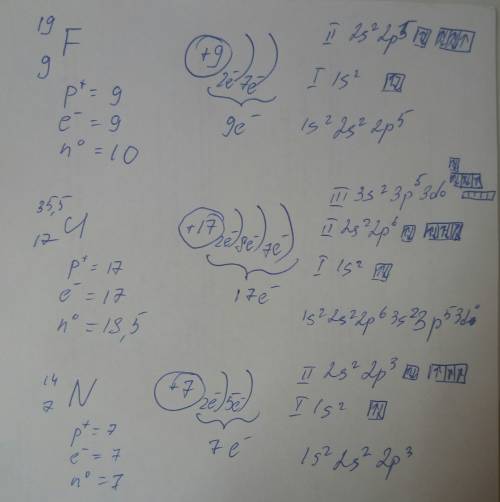 19
9 F
p⁺ = 9
e⁻ = 9
n⁰ = 10
+9
2e⁻ 7e⁻
9e⁻
II 2s² 2p⁵ ↑↓ ↑↓ ↑↓ ↑
I 1s² ↑↓
1s² 2s² 2p⁵
35,5
17 Cl
p⁺ = 17
e⁻ = 17
n⁰ = 18,5
+17
2e⁻ 8e⁻ 7e⁻
17e⁻
III 3s² 3p⁵ 3d⁰ ↑↓ ↑↓ ↑↓ ↑
II 2s² 2p⁶ ↑↓ ↑↓ ↑↓ ↑↓
I 1s² ↑↓
1s² 2s² 2p⁶ 3s² 3p⁵ 3d⁰
14
7 N
p⁺ = 7
e⁻ = 7
n⁰ = 7
+7
2e⁻ 5e⁻
7e⁻
II 2s² 2p³ ↑↓ ↑ ↑ ↑
I 1s² ↑↓
1s² 2s² 2p³